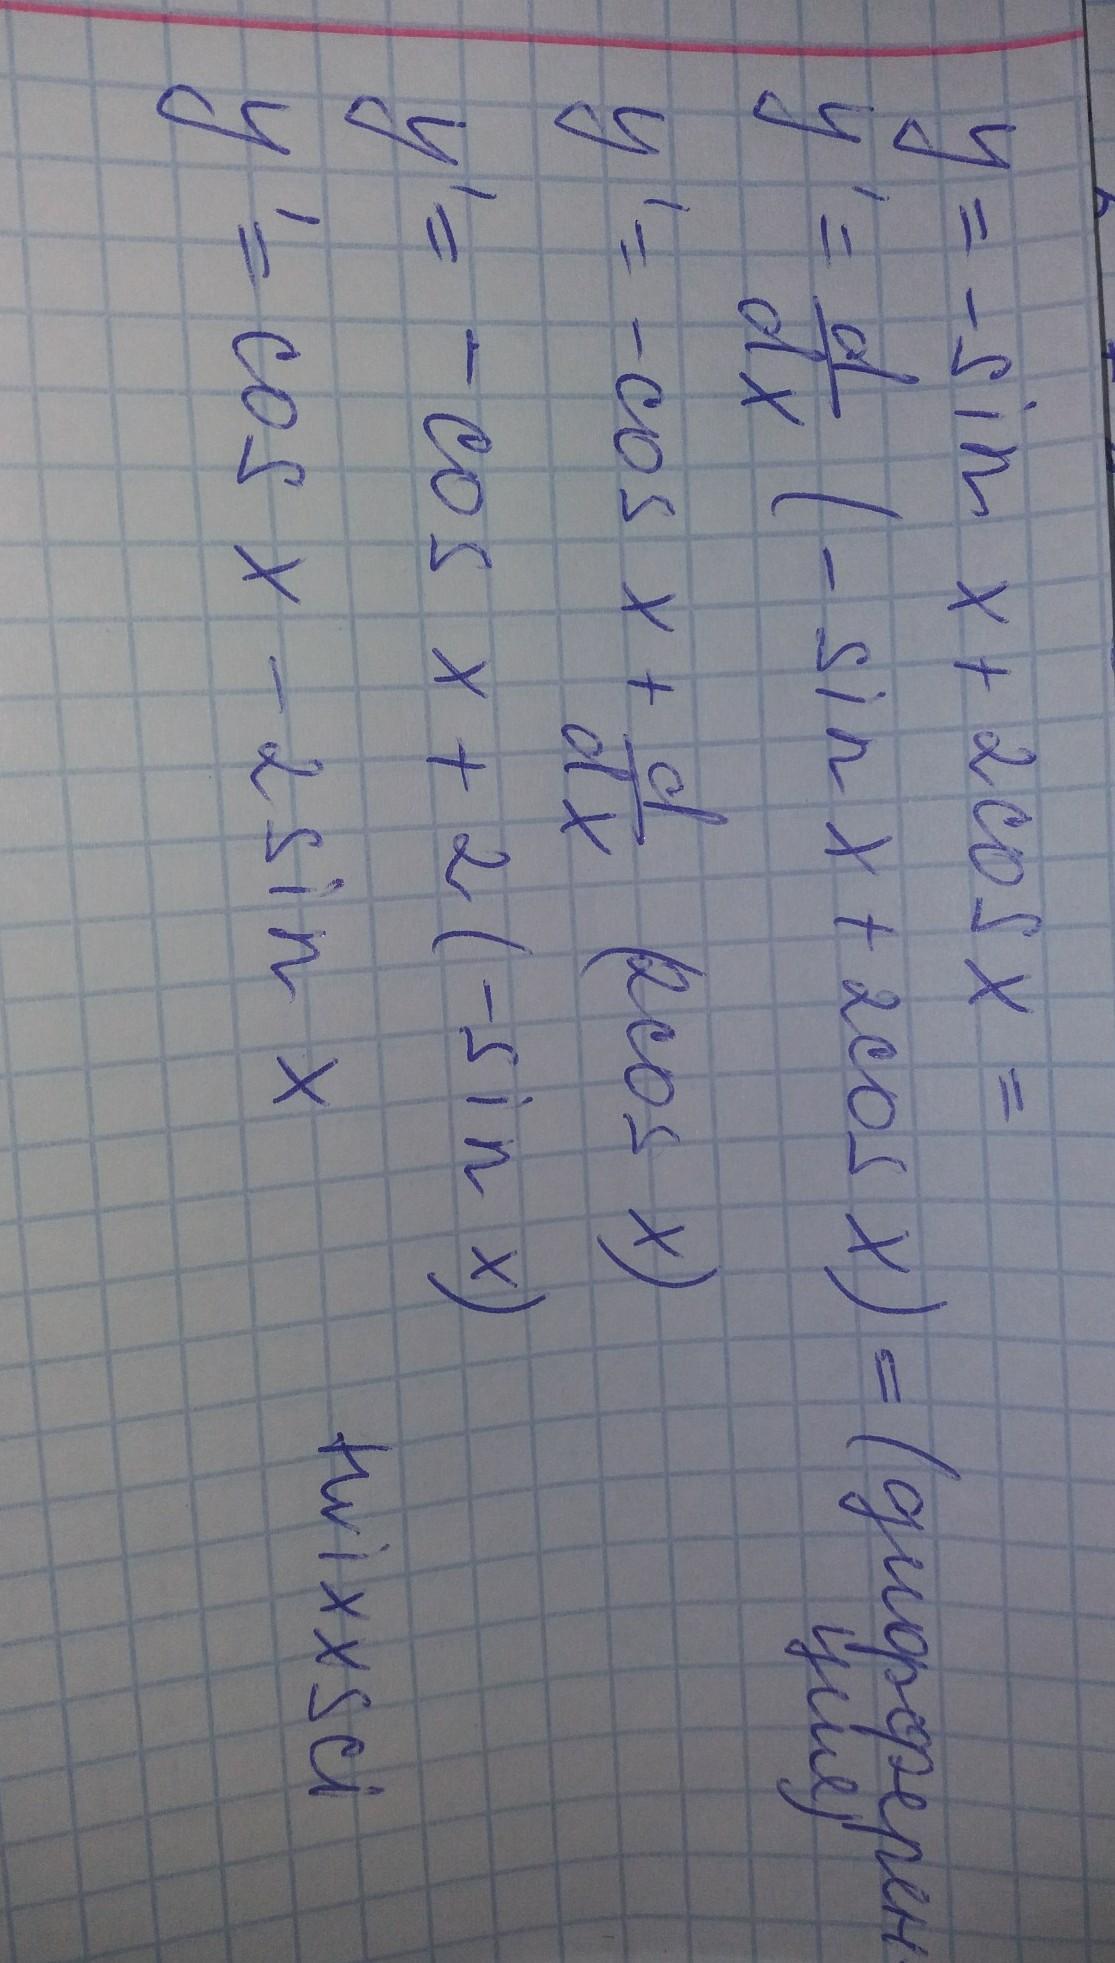 y = -sin x + 2cos x =
y' = d/dx (-sin x + 2cos x) = (дифферен
цише)
y' = -cos x + d/dx (2cos x)
y' = -cos x + 2(-sin x)
y' = cos x - 2sin x
twixxsci